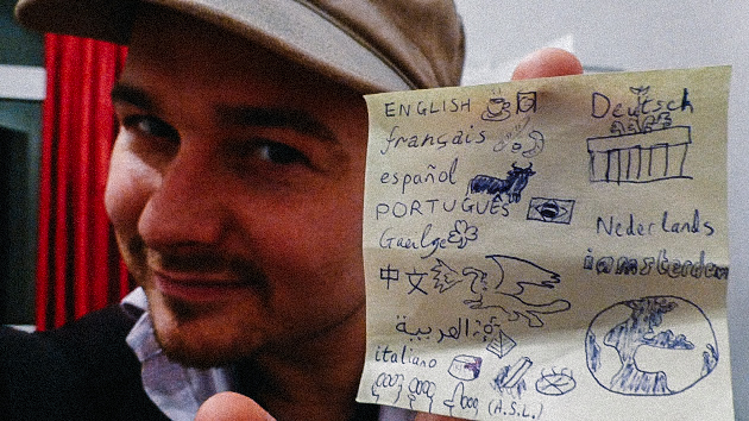 ENGLISH
français
español
PORTUGUÊS
Gaeilge
中文
العربية
italiano
(A.S.L.)
Deutsch
Nederlands
iamsterdam